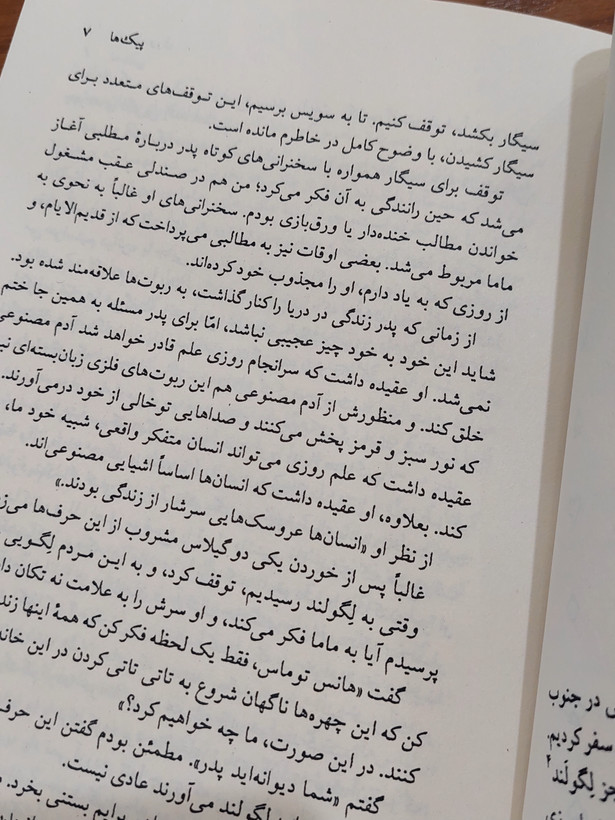 پیک‌ها ۷
سیگار بکشد، توقف کنیم. تا به سویس برسیم، این توقف‌های متعدد برای
سیگار کشیدن، با وضوح کامل در خاطرم مانده است.
توقف برای سیگار همواره با سخنرانی‌های کوتاه پدر دربارهٔ مطلبی آغاز
می‌شد که حین رانندگی به آن فکر می‌کرد؛ من هم در صندلی عقب مشغول
خواندن مطالب خنده‌دار یا ورق‌بازی بودم. سخنرانی‌های او غالباً به نحوی به
ماما مربوط می‌شد. بعضی اوقات نیز به مطالبی می‌پرداخت که از قدیم‌الایام، و
از روزی که به یاد دارم، او را مجذوب خود کرده‌اند.
از زمانی که پدر زندگی در دریا را کنار گذاشت، به ربوت‌ها علاقه‌مند شده بود.
شاید این خود به خود چیز عجیبی نباشد، امّا برای پدر مسئله به همین جا ختم
نمی‌شد. او عقیده داشت که سرانجام روزی علم قادر خواهد شد آدم مصنوعی
خلق کند. و منظورش از آدم مصنوعی هم این ربوت‌های فلزی زبان‌بسته‌ای
که نور سبز و قرمز پخش می‌کنند و صداهایی توخالی از خود درمی‌آورند.
عقیده داشت که علم روزی می‌تواند انسان متفکر واقعی، شبیه خود ما،
کند. بعلاوه، او عقیده داشت که انسان‌ها اساساً اشیایی مصنوعی‌اند.
از نظر او «انسان‌ها عروسک‌هایی سرشار از زندگی بودند.»
غالباً پس از خوردن یکی دو گیلاس مشروب از این حرف‌ها
وقتی به لگولند رسیدیم، توقف کرد، و به این مردم لِگویی
پرسیدم آیا به ماما فکر می‌کند، و او سرش را به علامت نه تکان
گفت «هانس توماس، فقط یک لحظه فکر کن که همهٔ اینها
کن که این چهره‌ها ناگهان شروع به تاتی تاتی کردن در این
کنند. در این صورت، ما چه خواهیم کرد؟»
گفتم «شما دیوانه‌اید پدر». مطمئن بودم گفتن این
لگولند می‌آورند عادی نیست.
برایم بستنی بخرد.
در جنوب
سفر کردیم.
لِگولَند۲